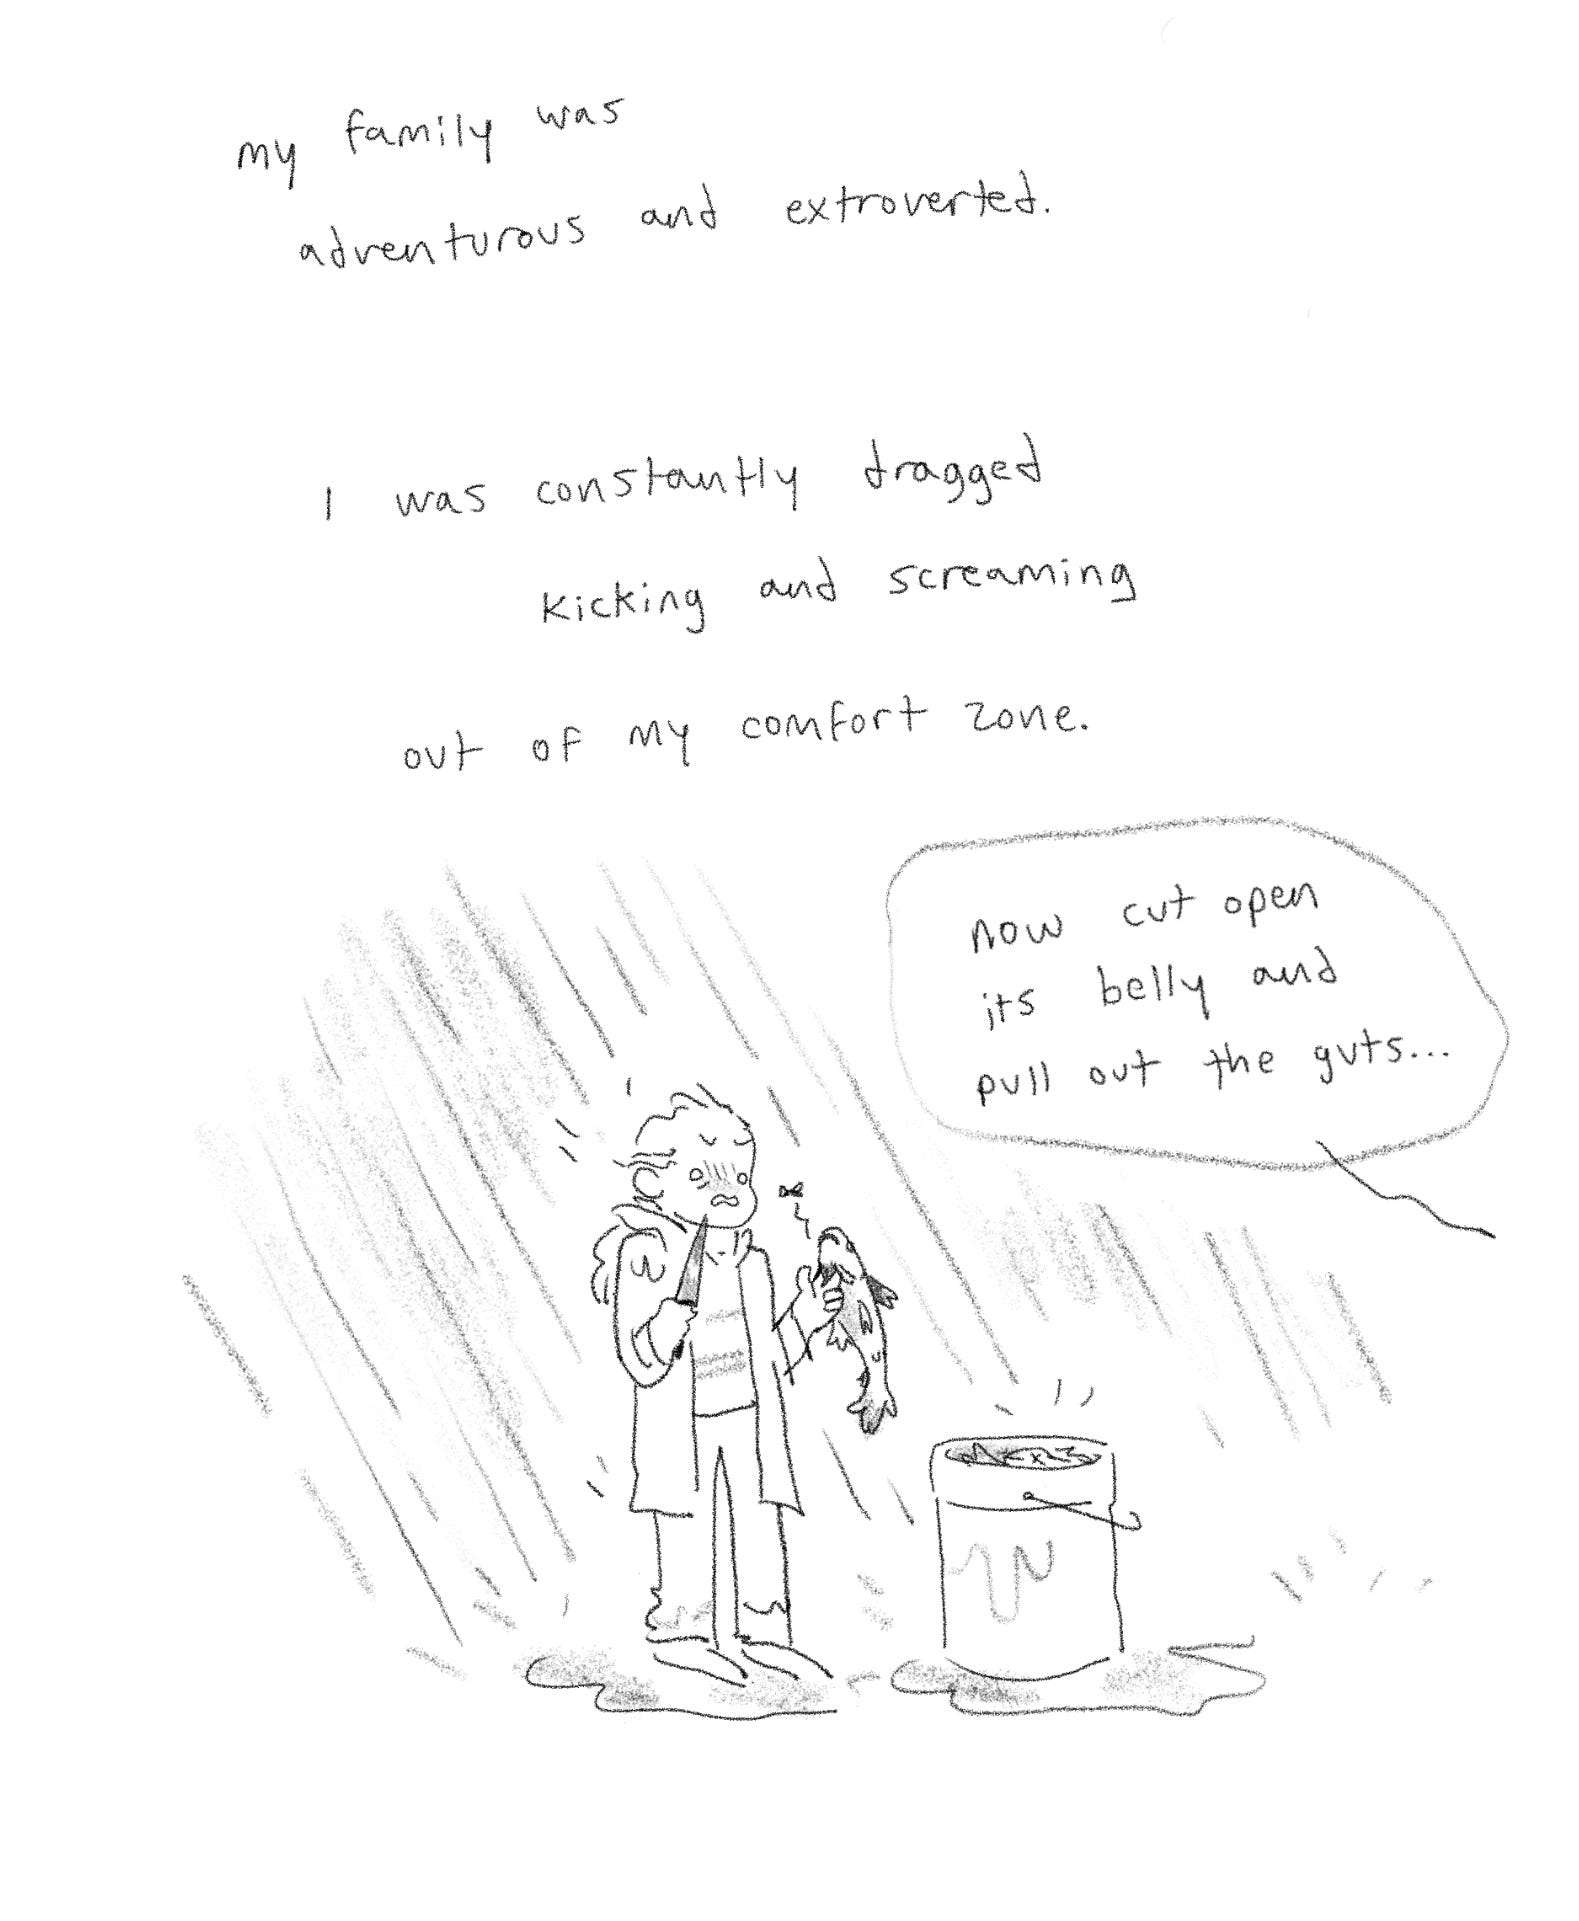 my family was
adventurous and extroverted.
I was constantly dragged
kicking and screaming
out of my comfort zone.
now cut open
its belly and
pull out the guts...